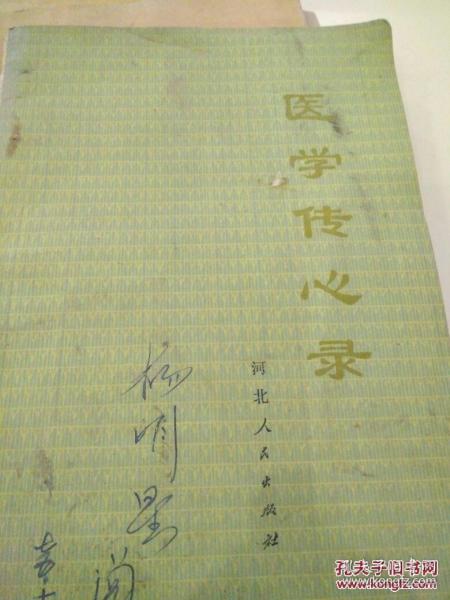 医学传心录
河北人民出版社
杨明星
阅
孔夫子旧书网
www.kongfz.com